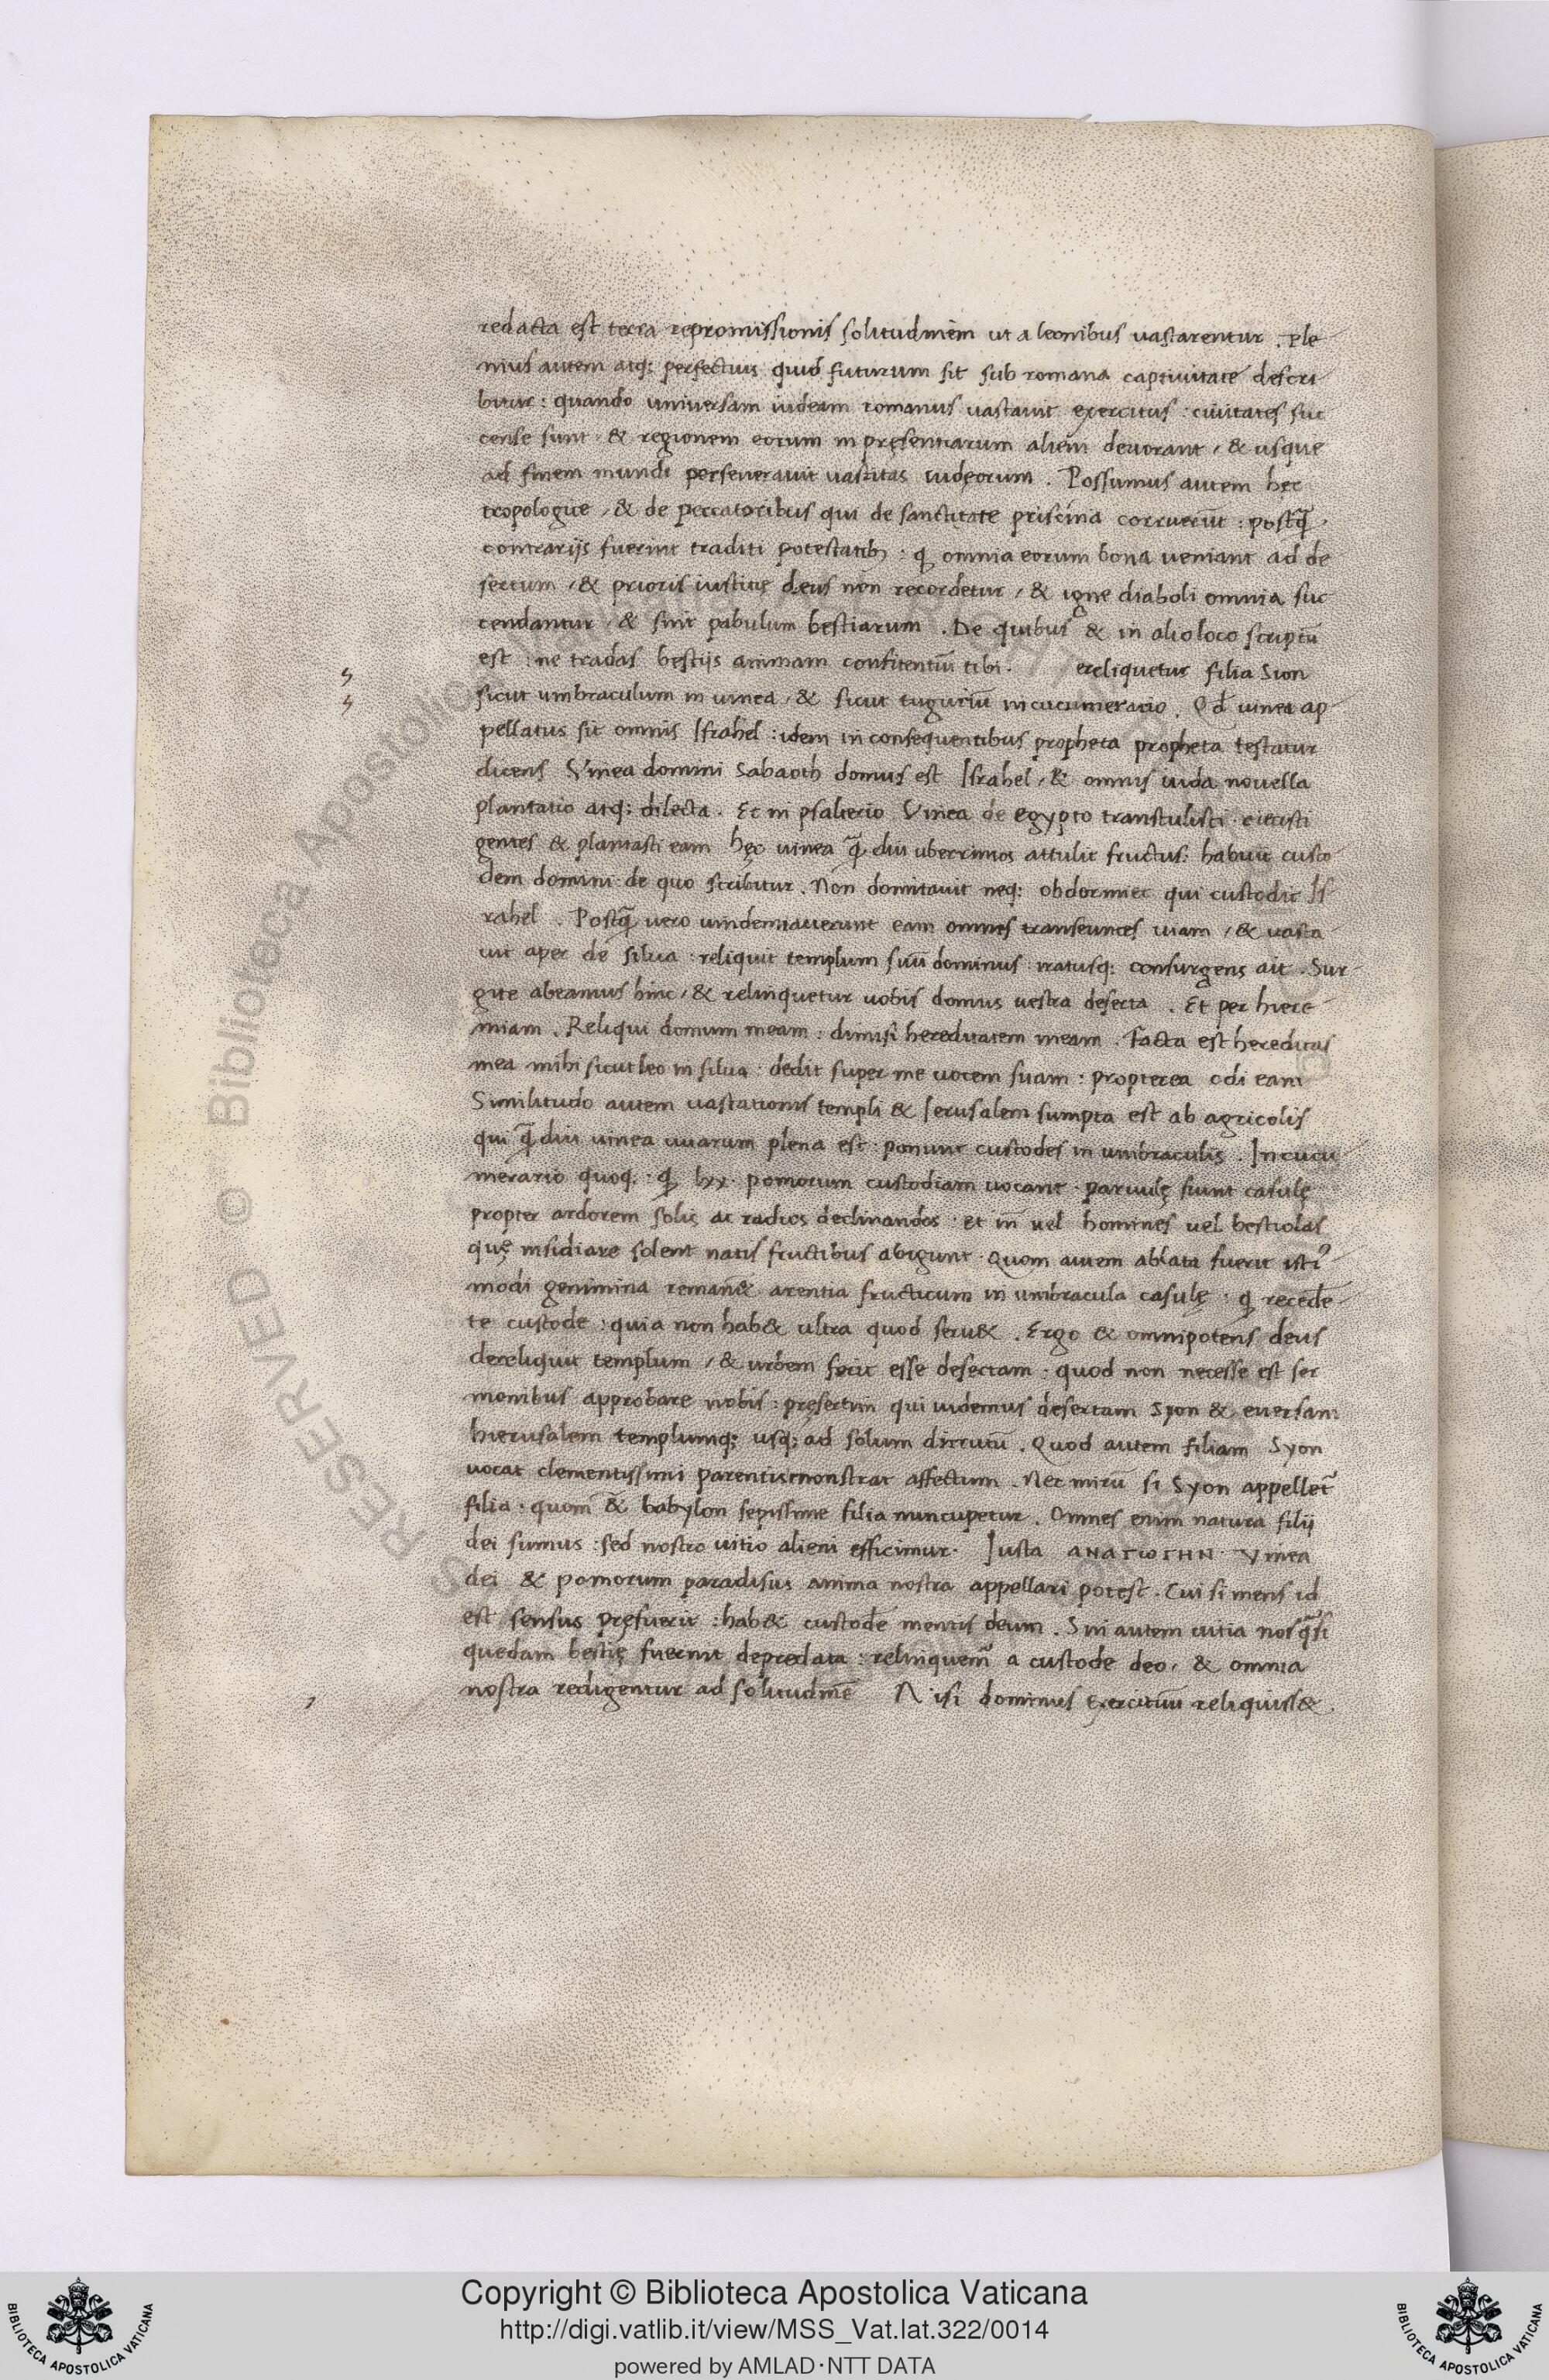 redacta est terra repromissionis solitudinem ut a leonibus vastarentur . Ple
nius autem atq; perfectius quid futurum sit sub romana captivitate descri
bitur : quando universam iudeam romanus vastavit exercitus : civitates suc
cense sunt , & regionem eorum in pręsentiarum alieni devorant , & usque
ad finem mundi perseveravit vastitas iudęorum . Possumus autem hec
tropologice , & de peccatoribus qui de sanctitate priscina corruerūt : postq̄
contrarijs fuerint traditi potestatib; : q omnia eorum bona veniant ad de
sertum , & prioris iustitię deus non recordetur , & igne diaboli omnia suc
cendantur , & sint pabulum bestiarum . De quibus & in alio loco scriptū
est : ne tradas bestijs animam confitentiū tibi . ercliquetur filia Sion
sicut umbraculum in vinea , & sicut tuguriū in cucumerario . Qđ vinea ap
pellatus sit omnis Israhel : idem in consequentibus propheta propheta testatur
dicens Vinea domini Sabaoth domus est Israhel , & omnis iuda novella
plantatio atq; dilecta . Et in psalterio Vinea de egypto transtulisti eiecisti
gentes & plantasti eam hęc vinea q̄ diu uberrimos attulit fructus : habuit custo
dem domini de quo scribitur . Non domitavit neq; obdormiet qui custodit Is
rahel . Postq̄ vero vindemiaverunt eam omnes transeuntes viam , & vasta
vit aper de silva : reliquit templum suū dominus iratusq; consurgens ait . Sur
gite abeamus hinc , & relinquetur vobis domus vestra deserta . Et per hiere
miam . Reliqui domum meam : dimisi hereditatem meam . Facta est hereditas
mea mihi sicut leo in silva : dedit super me vocem suam : propterea odi eam
Similitudo autem vastationis templi & Jerusalem sumpta est ab agricolis
qui q̄ diu vinea uvarum plena est ponunt custodes in umbraculis . In cucu
merario quoq; q lxx pomorum custodiam vocant parvulę fiunt casulę
propter ardorem solis ac radios declinandos : et in vel homines vel bestiolas
quę insidiare solent natis fructibus abigunt . Quom autem ablata fuerit isti᾿
modi genimina reman& arentia fructicum in umbracula casulę : q recede
te custode : quia non hab& ultra quod serv& . Ergo & omnipotens deus
dereliquit templum , & urbem fecit esse desertam quod non necesse est ser
monibus approbare nobis : pręsertim qui videmus desertam Syon & eversam
hierusalem templumq; usq; ad solum dirutū . Quod autem filiam Syon
vocat clementissimi parentis monstrat affectum . Nec mirū si Syon appellet᾿
filia : quom & babylon sepissime filia nuncupetur . Omnes enim natura filij
dei sumus : sed nostro vitio alieni efficimur . Iusta ΑΝΑΓΩΓΗΝ . Vinea
dei & pomorum paradisus anima nostra appellari potest . Cui si mens id
est sensus pręfuerit : hab& custodē mentis deum . Sin autem vitia nos q̄si
quedam bestię fuerint depredata : relinquem᾿ a custode deo , & omnia
nostra redigentur ad solitudinē Nisi dominus exercituū reliquiss& .
Copyright © Biblioteca Apostolica Vaticana
http://digi.vatlib.it/view/MSS_Vat.lat.322/0014
powered by AMLAD·NTT DATA
BIBLIOTECA APOSTOLICA VATICANA
BIBLIOTECA APOSTOLICA VATICANA